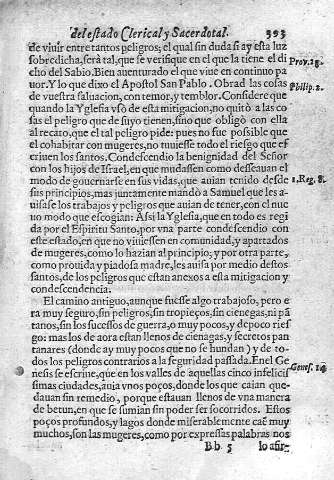 del estado Clerical y Sacerdotal. 393
de viuir entre tantos peligros; el qual sin duda si ay esta luz
sobredicha, será tal, que se verifique en el que la tiene el di Prov. 28.
cho del Sabio. Bien auenturado el que viue en continuo pa
uor. Y lo que dixo el Apostol San Pablo. Obrad las cosas Philip. 2.
de vuestra saluacion, con temor, y temblor. Considere que
quando la Yglesia vsó de esta mitigacion, no quitò a las co
sas el peligro que de suyo tienen, sino que obligó con ella
al recato, que el tal peligro pide: pues no fue possible que
el cohabitar con mugeres, no tuuiesse todo el riesgo que es
criuen los santos. Condescendio la benignidad del Señor
con los hijos de Israel, en que mudassen como desseauan el
modo de gouernarse en sus vidas, que auian tenido desde 1. Reg. 8.
sus principios, mas juntamente mandò a Samuel que les a-
uisase los trabajos y peligros que auian de tener, con el nue
uo modo que escogian: Assi la Yglesia, que en todo es regi
da por el Espiritu Santo, por vna parte condescendio con
este estado, en que no viuiessen en comunidad, y apartados
de mugeres, como lo hazian al principio; y por otra parte,
como prouida y piadosa madre, les auisa por medio destos
santos, de los peligros que están anexos a esta mitigacion y
condescendencia.
El camino antiguo, aunque fuesse algo trabajoso, pero e
ra muy seguro, sin peligros, sin tropieços, sin cienegas, ni pã
tanos, sin los sucessos de guerra, o muy pocos, y de poco ries
go: mas los de aora estan llenos de cienagas, y secretos pan
tanares (donde ay muy pocos que no se hundan) y de to-
dos los peligros contrarios a la seguridad passada. En el Ge
nesis se escriue, que en los valles de aquellas cinco infelicis Genes. 14.
simas ciudades, auia vnos poços, donde los que caian que-
dauan sin remedio, porque estauan llenos de vna manera
de betun, en que se sumian sin poder ser socorridos. Estos
poços profundos, y lagos donde miserablemente caẽ muy
muchos, son las mugeres, como por expressas palabras nos
Bb 5 lo afir-